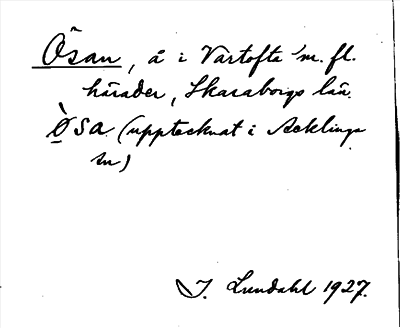 Ösan, å i Vartofta m. fl.
härader, Skaraborgs län.
Ò̱sa (upptecknat i Acklinga
sn)
I. Lundahl 1927.